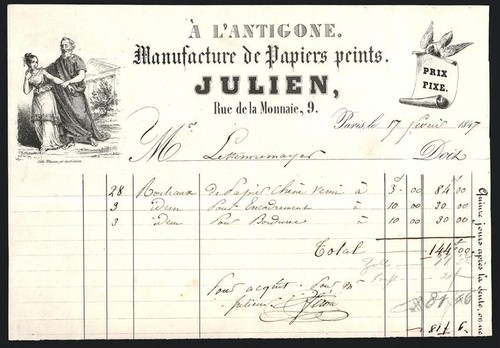 À L'ANTIGONE.
Manufacture de Papiers peints.
JULIEN,
Rue de la Monnaie, 9.
PRIX
FIXE.
Paris, le 17 février 1847
Mr Doit
28 Rouleaux de Papier Chêne verni à 3 00 84 00
3 idem pour Encadrement à 10 00 30 00
3 idem pour Bordure à 10 00 30 00
Total 144 00
Pour acquit Pour Mr
Julien
817 6